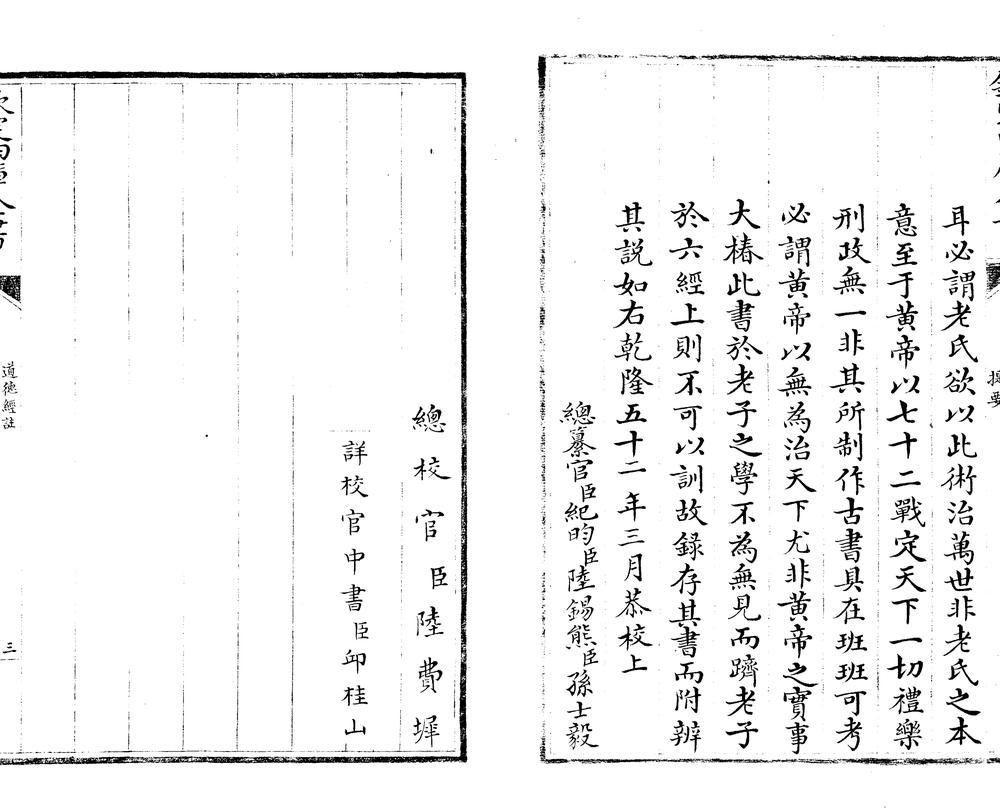 提要
耳必謂老氏欲以此術治萬世非老氏之本
意至于黄帝以七十二戰定天下一切禮樂
刑政無一非其所制作古書具在班班可考
必謂黄帝以無為治天下尤非黄帝之實事
大椿此書於老子之學不為無見而躋老子
於六經上則不可以訓故錄存其書而附辨
其説如右乾隆五十二年三月恭校上
總纂官臣紀昀臣陸錫熊臣孫士毅
總校官臣陸費墀
詳校官中書臣邱桂山
欽定四庫全書
道德經註
三